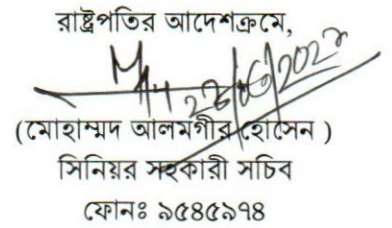 রাষ্ট্রপতির আদেশক্রমে,
(মোহাম্মদ আলমগীর হোসেন )
সিনিয়র সহকারী সচিব
ফোনঃ ৯৫৪৫৯৭৪